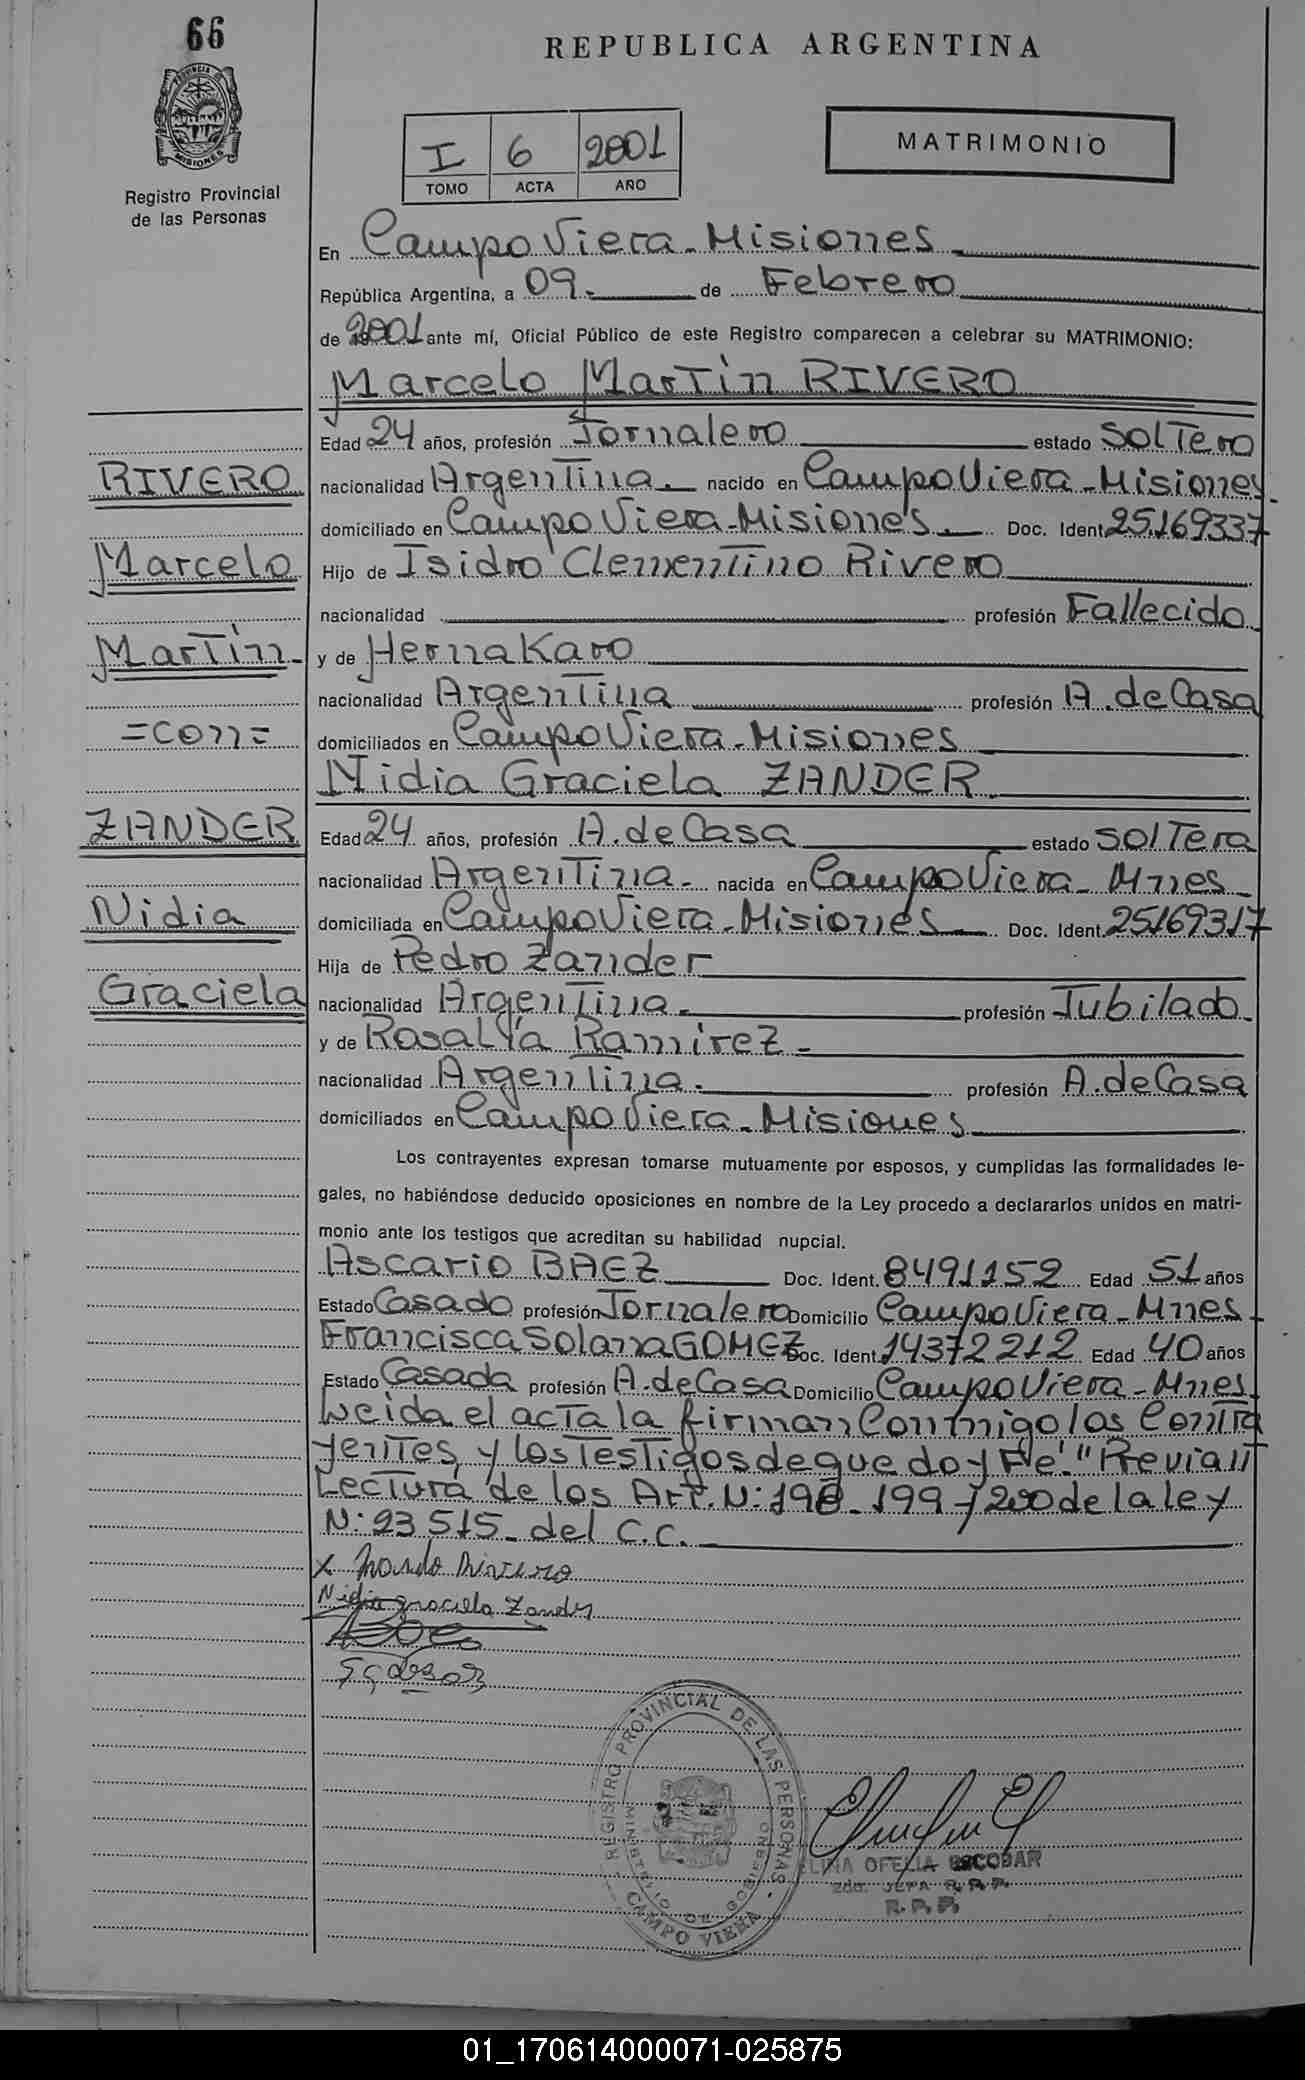 66
REPUBLICA ARGENTINA
PROVINCIA DE MISIONES
Registro Provincial
de las Personas
I 6 2001
TOMO ACTA AÑO
MATRIMONIO
En Campo Viera - Misiones
República Argentina, a 09.- de Febrero
de 2001 ante mí, Oficial Público de este Registro comparecen a celebrar su MATRIMONIO:
Marcelo Martin RIVERO
Edad 24 años, profesión Jornalero estado SolTero
RIVERO
nacionalidad Argentina. nacido en Campo Viera - Misiones.
domiciliado en Campo Viera - Misiones. Doc. Ident. 25.169337
Marcelo
Hijo de Isidro Clementino Rivero
nacionalidad profesión Fallecido
Martin -
y de Herna Karo
nacionalidad Argentina profesión A. de Casa
= con =
domiciliados en Campo Viera - Misiones
Nidia Graciela ZANDER
ZANDER
Edad 24 años, profesión A. de Casa estado solTera
nacionalidad Argentina - nacida en Campo Viera - Mnes
Nidia
domiciliada en Campo Viera - Misiones Doc. Ident. 25169317
Hija de Pedro Zander
Graciela
nacionalidad Argentina. profesión Jubilado
y de Rosalía Ramirez -
nacionalidad Argentina. profesión A. de Casa
domiciliados en Campo Viera - Misiones
Los contrayentes expresan tomarse mutuamente por esposos, y cumplidas las formalidades le-
gales, no habiéndose deducido oposiciones en nombre de la Ley procedo a declararlos unidos en matri-
monio ante los testigos que acreditan su habilidad nupcial.
Ascario BAEZ Doc. Ident. 8491152 Edad 51 años
Estado Casado profesión Jornalero Domicilio Campo Viera - Mnes
Francisca Solana GOMEZ Doc. Ident. 14372212 Edad 40 años
Estado Casada profesión A. de Casa Domicilio Campo Viera - Mnes
Lueida el acta la firman Conmigo los Contra
yentes y los testigos de que doy Fe. "Previa
Lectura de los Art. N: 198 - 199 - y 200 de la ley
N: 23.515 - del C.C.
x Rivero
Nidia graciela Zander
REGISTRO PROVINCIAL DE LAS PERSONAS
MINISTERIO DE GOBIERNO
CAMPO VIERA
ELINA OFELIA ESCOBAR
2da. JEFA R.P.P.
R.P.P.
01_170614000071-025875